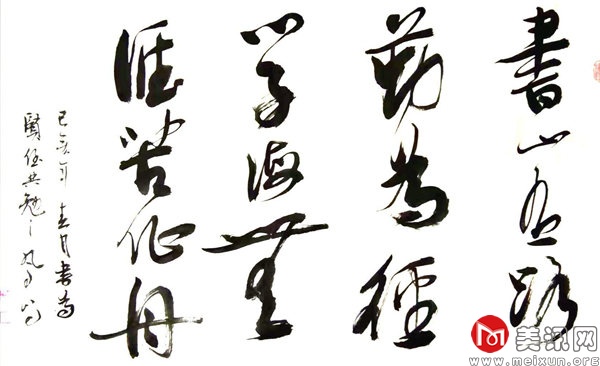 書山有路
勤為徑
學海無
涯苦作舟
己亥年春月書為
賢侄共勉之
美讯网
www.meixun.org